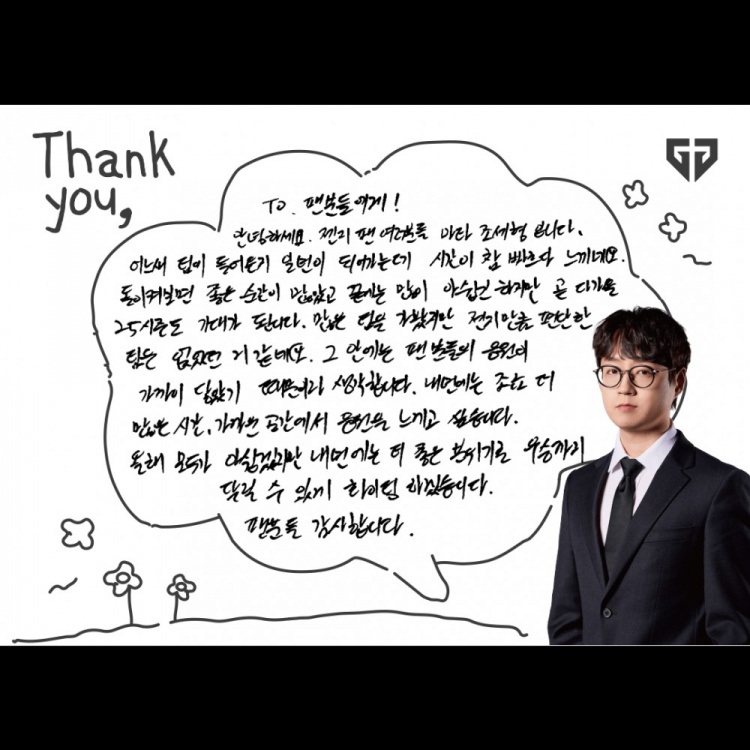 Thank
you,
TO. 팬분들에게!
안녕하세요. 젠지 팬 여러분들 마타 조세형 입니다.
어느새 팀이 들어온지 일년이 되어가는데 시간이 참 빠르다 느끼네요.
돌이켜보면 좋은 순간이 많았고 끝에는 많이 아쉽긴 하지만 곧 다가올
25시즌도 기대가 됩니다. 많은 팀을 가봤지만 젠지만큼 편안한
팀은 없었던 거 같네요. 그 안에는 팬분들의 응원이
가까이 닿았기 때문이라 생각합니다. 내년에는 조금 더
많은 시간, 가까운 공간에서 응원을 느끼고 싶습니다.
올해 모두가 아쉽겠지만 내년에는 더 좋은 분위기로 우승까지
달릴 수 있게 화이팅 하겠습니다.
팬분들 감사합니다.